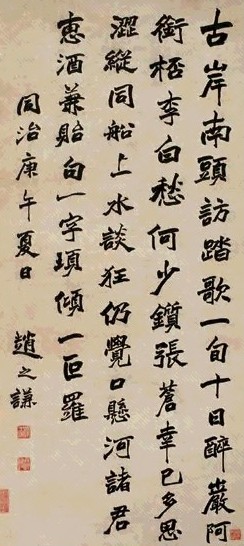 古岸南頭訪踏歌一旬十日醉巖阿
銜杯李白愁何少鎖張蒼幸已多思
澀縱同船上水談狂仍覺口懸河諸君
惠酒兼貽句一字項傾一叵羅
同治庚午夏日
趙之謙